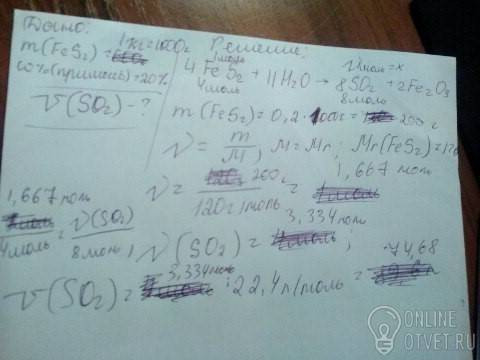 Дано:
m(FeS₂) = 1кг=1000г
ω%(примесь)=20%
V(SO₂) - ?
Решение:
1моль V моль=x
4FeS₂ + 11H₂O → 8SO₂ + 2Fe₂O₃
4моль 8моль
m(FeS₂)=0,2·1000г= 200г
ν = m/M; M=Mr; Mr(FeS₂)=120
ν = 200г / 120г/моль = 1,667 моль
1,667 моль / 4моль = ν(SO₂) / 8моль; ν(SO₂) = 3,334моль;
V(SO₂) = 3,334моль · 22,4л/моль = 74,68
ONLINE
OTVET.RU